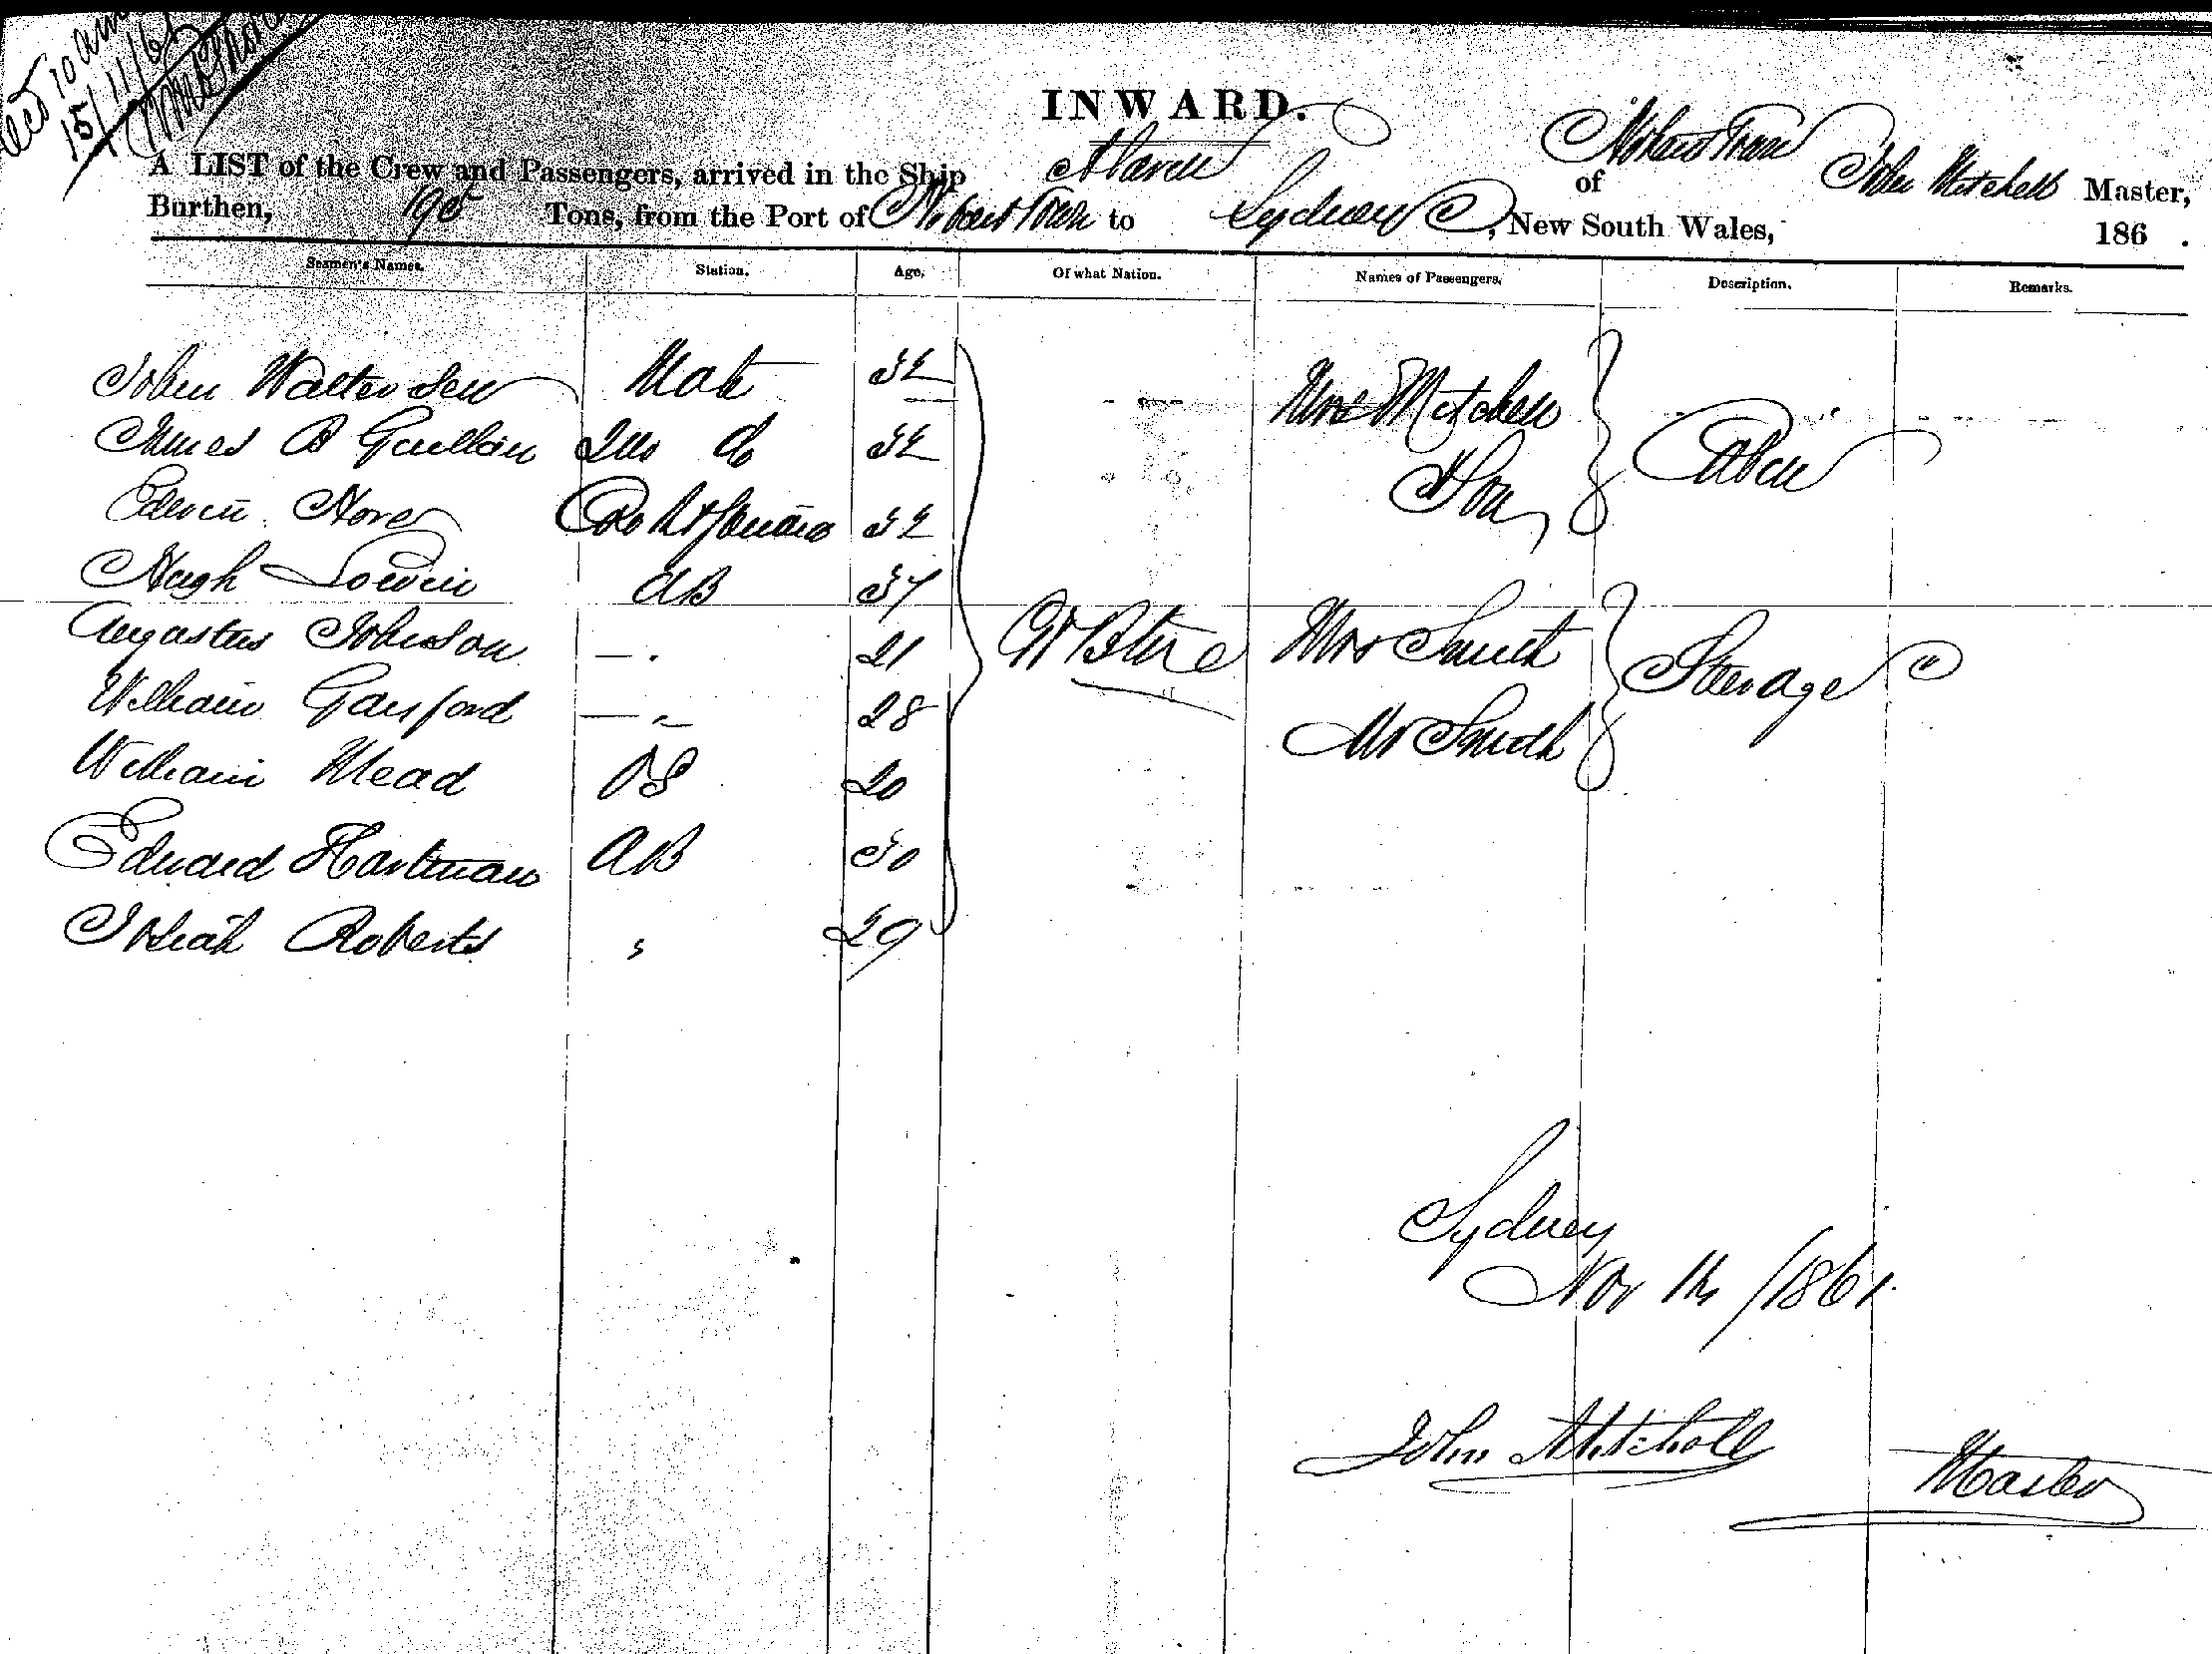 10 am
15/11/61
INWARD.
A LIST of the Crew and Passengers, arrived in the Ship of Hobart Town John Mitchell Master,
Burthen, Tons, from the Port of Hobart Town to Sydney, New South Wales, 186 .
Seamen's Names. Station. Age. Of what Nation. Names of Passengers. Description. Remarks.
John Mate 32 Mrs Mitchell Cabin
James B 2nd do 32 & Son
Edwin 32
Hugh AB 37
Augustus Johnson — . 21 Mrs Smith Steerage
William Gansford — " 28 Mr Smith
William Mead OS 20
Edward Hartman AB 30
Josiah Roberts " 29
Sydney
Nov 14 /1861.
John Mitchell Master